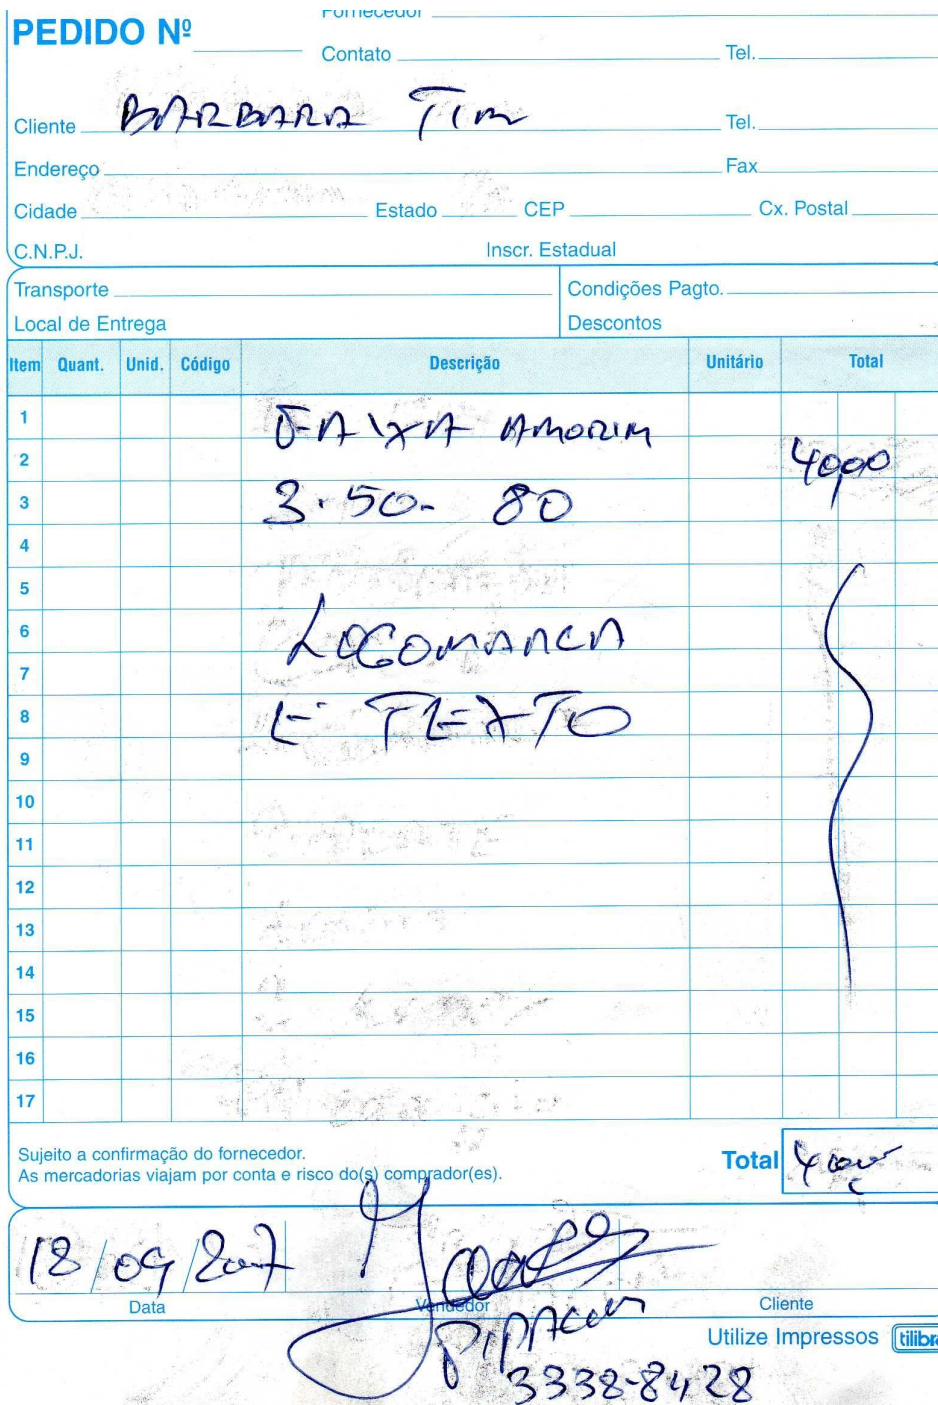 Fornecedor
PEDIDO Nº
Contato
Tel.
Cliente BARBARA TIM
Tel.
Endereço
Fax
Cidade
Estado
CEP
Cx. Postal
C.N.P.J.
Inscr. Estadual
Transporte
Condições Pagto.
Local de Entrega
Descontos
Item Quant. Unid. Código Descrição Unitário Total
1 FAIXA AMORIM
2 40,00
3 3.50- 80
4
5
6 LOGOMARCA
7
8 E TEXTO
9
10
11
12
13
14
15
16
17
Sujeito a confirmação do fornecedor.
As mercadorias viajam por conta e risco do(s) comprador(es).
Total
18/09/2007
Data
Vendedor
Cliente
Utilize Impressos tilibra
3338-8428